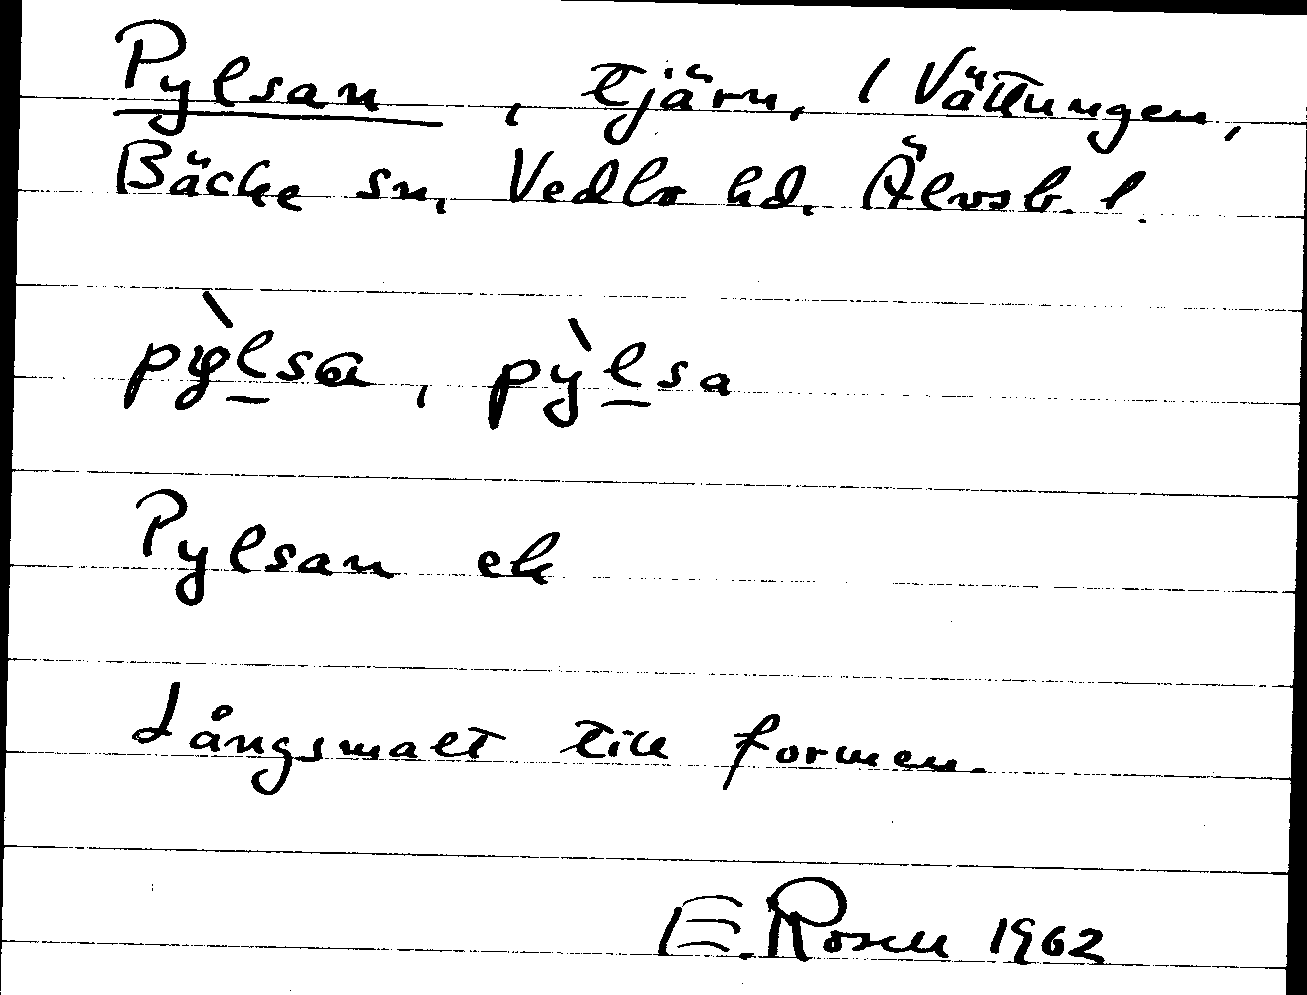 Pylsan, tjärn, / Vättungen,
Bäcke sn, Vedbo hd. Älvsb. l.
pỳlsa, pỳlsa
Pylsan ek
Långsmalt till formen.
E. Rosell 1962